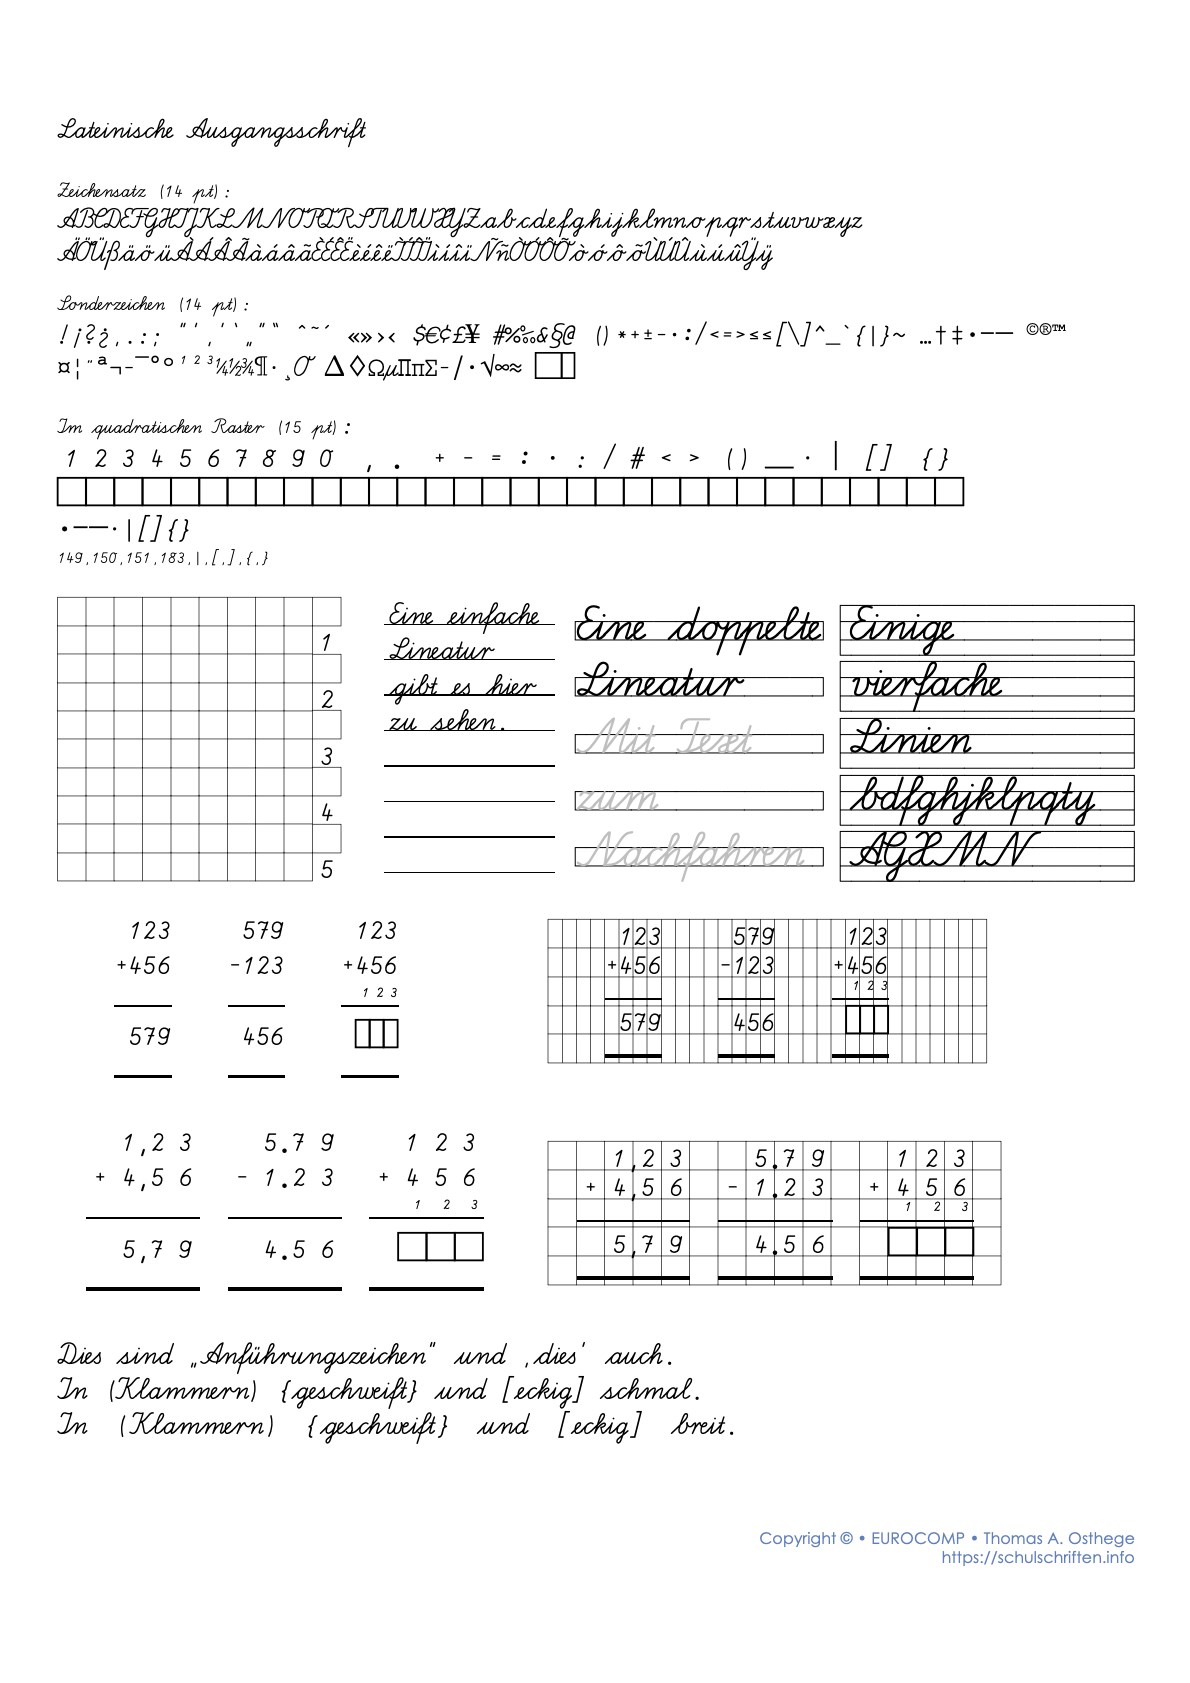 Lateinische Ausgangsschrift
Zeichensatz (14 pt) :
ABCDEFGHIJKLMNOPQRSTUVWXYZabcdefghijklmnopqrstuvwxyz
ÄÖÜßäöüÀÁÂÃàáâãÈÉÊËèéêëÌÍÎÏìíîïÑñÒÓÔÕòóôõÙÚÛùúûŸÿ
Sonderzeichen (14 pt) :
!¡?¿,.:; "' ‚'‘ „"“ ˆ˜´ «»›‹ $€¢£¥ #%‰&§@ () *+±–·:/<=>≤≤[\]^_`{|}~ …†‡•–— ©®™
¤¦¨ª¬-¯°º¹²³¼½¾¶·¸Ø ∆◊ΩµΠπΣ-/·√∞≈ □□
Im quadratischen Raster (15 pt) :
1 2 3 4 5 6 7 8 9 0 , . + - = : · : / # < > ( ) _ · | [ ] { }
•––·|[]{}
149,150,151,183,|,[,],{,}
1
2
3
4
5
Eine einfache
Lineatur
gibt es hier
zu sehen.
Eine doppelte
Lineatur
Mit Text
zum
Nachfahren
Einige
vierfache
Linien
bdfghjklpqty
AGXMN
123 579 123
+456 -123 +456
1 2 3
579 456
123 579 123
+456 -123 +456
1 2 3
579 456
1,2 3 5.7 9 1 2 3
+ 4,5 6 - 1.2 3 + 4 5 6
1 2 3
5,7 9 4.5 6
1,2 3 5.7 9 1 2 3
+ 4,5 6 - 1.2 3 + 4 5 6
1 2 3
5,7 9 4.5 6
Dies sind „Anführungszeichen" und ‚dies' auch.
In (Klammern) {geschweift} und [eckig] schmal.
In (Klammern) {geschweift} und [eckig] breit.
Copyright © • EUROCOMP • Thomas A. Osthege
https://schulschriften.info